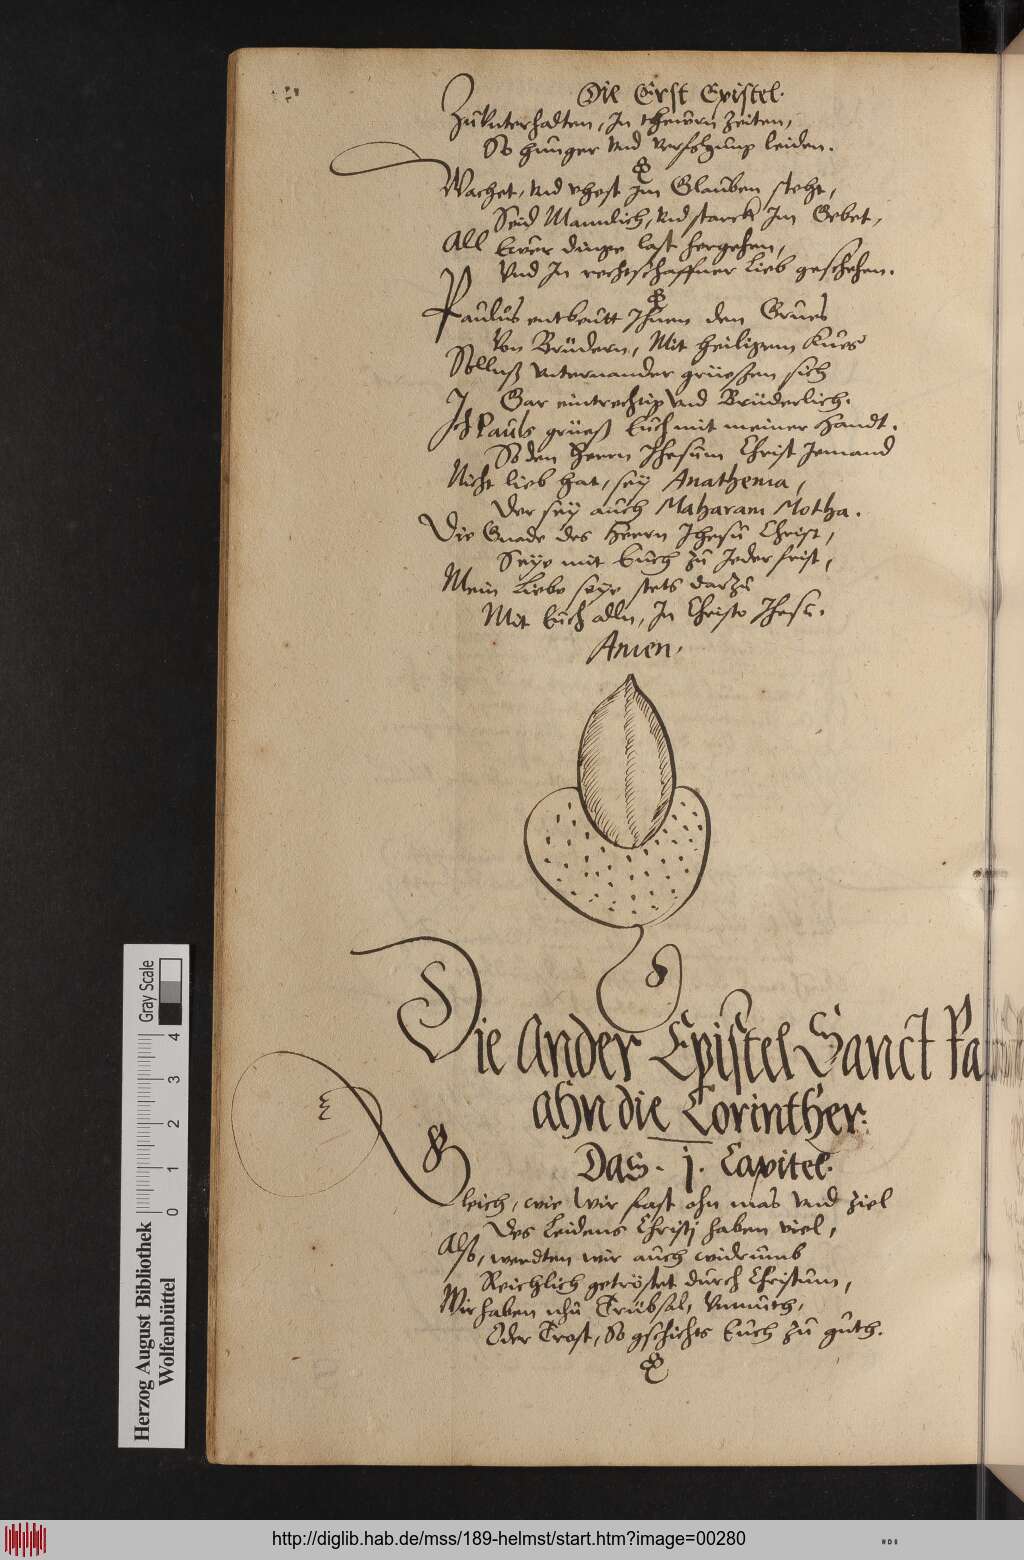 Die Erst Epistel.
Zu Vnterhalten, In thewrn Zeiten,
So hunger vnd verfolgung leiden.
Wachet, vnd vhest im Glauben steht,
Seid Mannlich, vnd starck Im Gebet,
All Ewer dinge last hergehen,
Vnd In rechtschaffner Lieb geschehen.
Paulus entbeutt Ihnen den Grues
Von Brüdern, Mit heiligem Kues
Vnternander grüessen sich
Gar eintrechtig vnd Brüderlich.
Ich Pauls grüess Euch mit meiner Handt.
So den Herrn Jhesum Christ Jemand
Nicht lieb hat, sey Anathema,
Der sey auch Maharam Motha.
Die Gnade des Herrn Jhesu Christ,
Seye mit Euch zu Jeder frist,
Mein Liebe seye stets darzu
Mit Euch alln, In Christo Jhesu.
Amen.
Die Ander Epistel Sanct Pa
ahn die Corinther:
Das . j . Capitel.
Gleich, wie Wir fast ohn mas vnd ziel
Des Leidens Christj haben viel,
Also, werdten wir auch widrumb
Reichlich getröstet durch Christum,
Wir haben nhu Trübsal, Vnmuth,
Oder Trost, So gschichts Euch zu guth.
Herzog August Bibliothek
Wolfenbüttel
0 1 2 3 4
Gray Scale
http://diglib.hab.de/mss/189-helmst/start.htm?image=00280